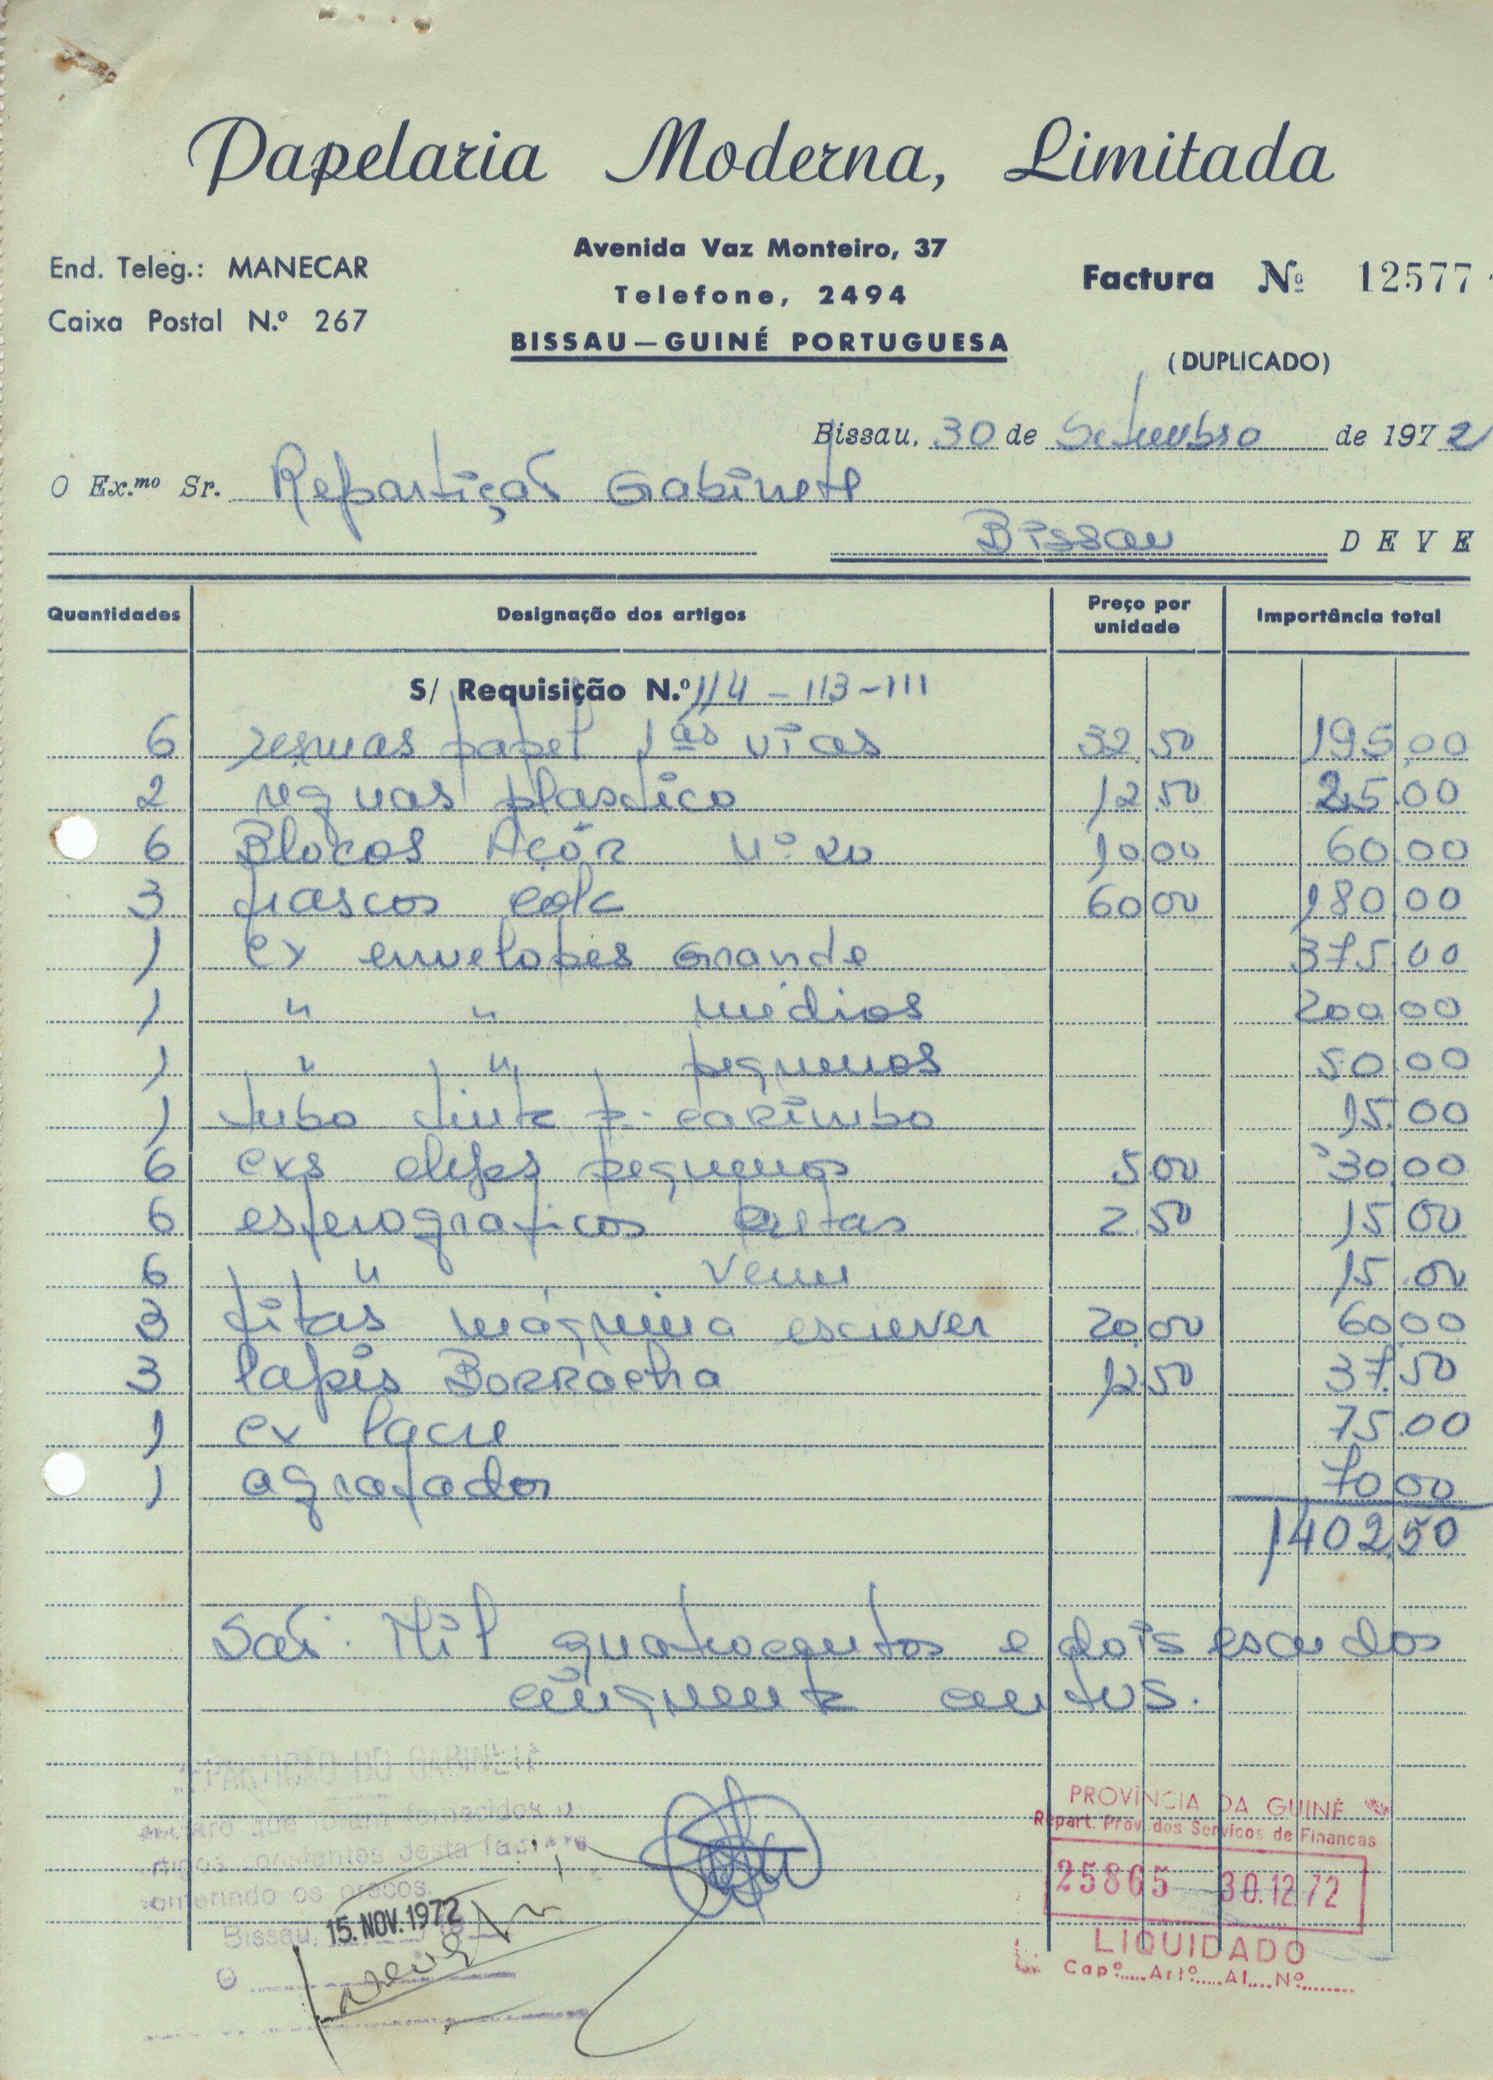 Papelaria Moderna, Limitada
End. Teleg.: MANECAR
Caixa Postal N.º 267
Avenida Vaz Monteiro, 37
Telefone, 2494
BISSAU — GUINÉ PORTUGUESA
Factura Nº 12577
(DUPLICADO)
Bissau, 30 de Setembro de 1972
O Ex.mo Sr. Repartição Gabinete
Bissau DEVE
Quantidades Designação dos artigos Preço por unidade Importância total
S/ Requisição N.º 114 - 113 - 111
6 resmas papel 1ªs vias 32,50 195,00
2 reguas plastico 12,50 25,00
6 Blocos Açôr Nº 20 10,00 60,00
3 frascos cola 60,00 180,00
1 cx envelopes Grande 375,00
1 " " médios 200,00
1 " " pequenos 50,00
1 tubo tinta p. carimbo 15,00
6 cxs clips pequenos 5,00 30,00
6 esferograficos pretas 2,50 15,00
6 " Verm 15,00
3 fitas máquina escrever 20,00 60,00
3 lapis Borracha 12,50 37,50
1 cx lacre 75,00
1 agrafador 70,00
1402,50
Saõ: Mil quatrocentos e dois escudos
cinquenta centvs.
REPARTIÇÃO DO GABINETE
Declaro que foram fornecidos o
artigos constantes desta factura
conferindo os preços.
Bissau, 15. NOV. 1972
O
PROVÍNCIA DA GUINÉ
Repart. Prov. dos Serviços de Finanças
25865 30.12.72
LIQUIDADO
Capº..... Artº..... Al.... Nº.......